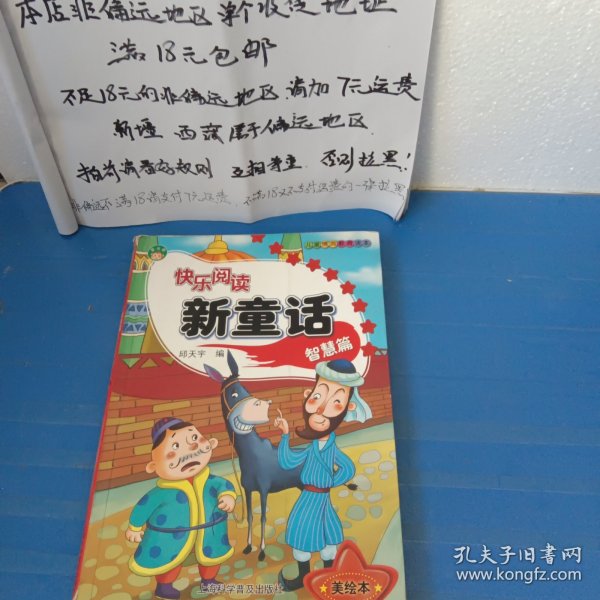 本店非偏远地区单个收货地址
满18元包邮
不足18元的非偏远地区,请加7元运费
新疆 西藏属于偏远地区
拍前请看清规则 互相尊重,否则拉黑!
非偏远不满18请支付7元运费,不满18又不支付运费的一律拉黑
快乐阅读
新童话
智慧篇
邱天宇 编
上海科学普及出版社
美绘本
孔夫子旧书网
www.kongfz.com